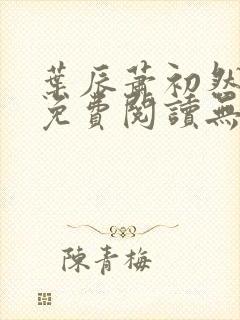 葉辰蕭初然
免費閱讀無
陳青梅